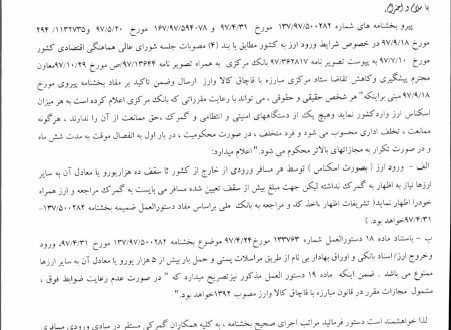 با سلام و احترام؛
پیرو بخشنامه های شماره ۱۳۷/۹۷/۵۰۰۲۸۲ مورخ ۹۷/۴/۳۱ و ۱۶۷/۹۷/۵۹۴۰۷۸ مورخ ۹۷/۵/۲۰ و ۲۹۴/۱۱۳۲۷۳۵
مورخ ۹۷/۹/۱۸ در خصوص شرایط ورود ارز به کشور مطابق با بند (۴) مصوبات جلسه شورای عالی هماهنگی اقتصادی کشور
مورخ ۹۷/۷/۱۰ به پیوست تصویر نامه ۹۷/۳۶۲۸۱۷ بانک مرکزی به همراه تصویر نامه ۹۷/۱۳۶۴۴/ص مورخ ۹۷/۱۰/۲۹معاون
محترم پیشگیری وکاهش تقاضا ستاد مرکزی مبارزه با قاچاق کالا وارز ارسال وضمن تاکید بر مفاد بخشنامه پیروی مورخ
۹۷/۹/۱۸مبنی براینکه" هر شخص حقیقی و حقوقی ، می تواند با رعایت مقرراتی که بانک مرکزی اعلام کرده است به هر میزان
اسکناس ارز واردکشور نماید وهیچ یک از دستگاههای امنیتی و انتظامی و گمرک ،حق ممانعت از آن را ندارند ، هرگونه
ممانعت ، تخلف اداری محسوب می شود و فرد متخلف ، در صورت محکومیت ، در بار اول به انفصال موقت به مدت شش ماه
و در صورت تکرار به مجازاتهای بالاتر محکوم می شود." اعلام میدارد:
الف - ورود ارز ( بصورت اسکناس ) توسط هر مسافر ورودی از خارج از کشور تا سقف ده هزاریورو یا معادل آن به سایر
ارزها نیاز به اظهار به گمرک نداشته لیکن جهت مبلغ بیش از سقف تعیین شده مسافر می بایست به گمرک مراجعه و ارز همراه
خودرا اظهار نماید( تشریفات اظهار ،اخذ کد و مراجعه به بانک ملی براساس مفاد دستورالعمل ضمیمه بخشنامه ۱۳۷/۵۰۰۲۸۲-
۹۷/۴/۳۱خواهد بود.)
ب - باستناد ماده ۱۸ دستورالعمل شماره ۱۳۳۷۶۳ مورخ ۹۷/۴/۲۴ موضوع بخشنامه ۱۳۷/۹۷/۵۰۰۲۸۲ مورخ ۹۷/۴/۳۱، ورود
وخروج ارز/ اسناد بانکی و اوراق بهادار بی نام از طریق مراسلات پستی و حمل بار بیش از ۵ هزار یورو یا معادل آن به سایر ارزها
ممنوع می باشد . ضمن اینکه ماده ۱۹ دستور العمل مذکور نیزتصریح میدارد که " در صورت عدم رعایت ضوابط فوق ،
مشمول مجازات مقرر در قانون مبارزه با قاچاق کالا وارز مصوب ۱۳۹۲خواهد بود."
لذا خواهشمند است دستور فرمائید مراتب اجرای صحیح بخشنامه ، به کلیه همکاران گمرکی مستقر در مبادی ورودی مسافری